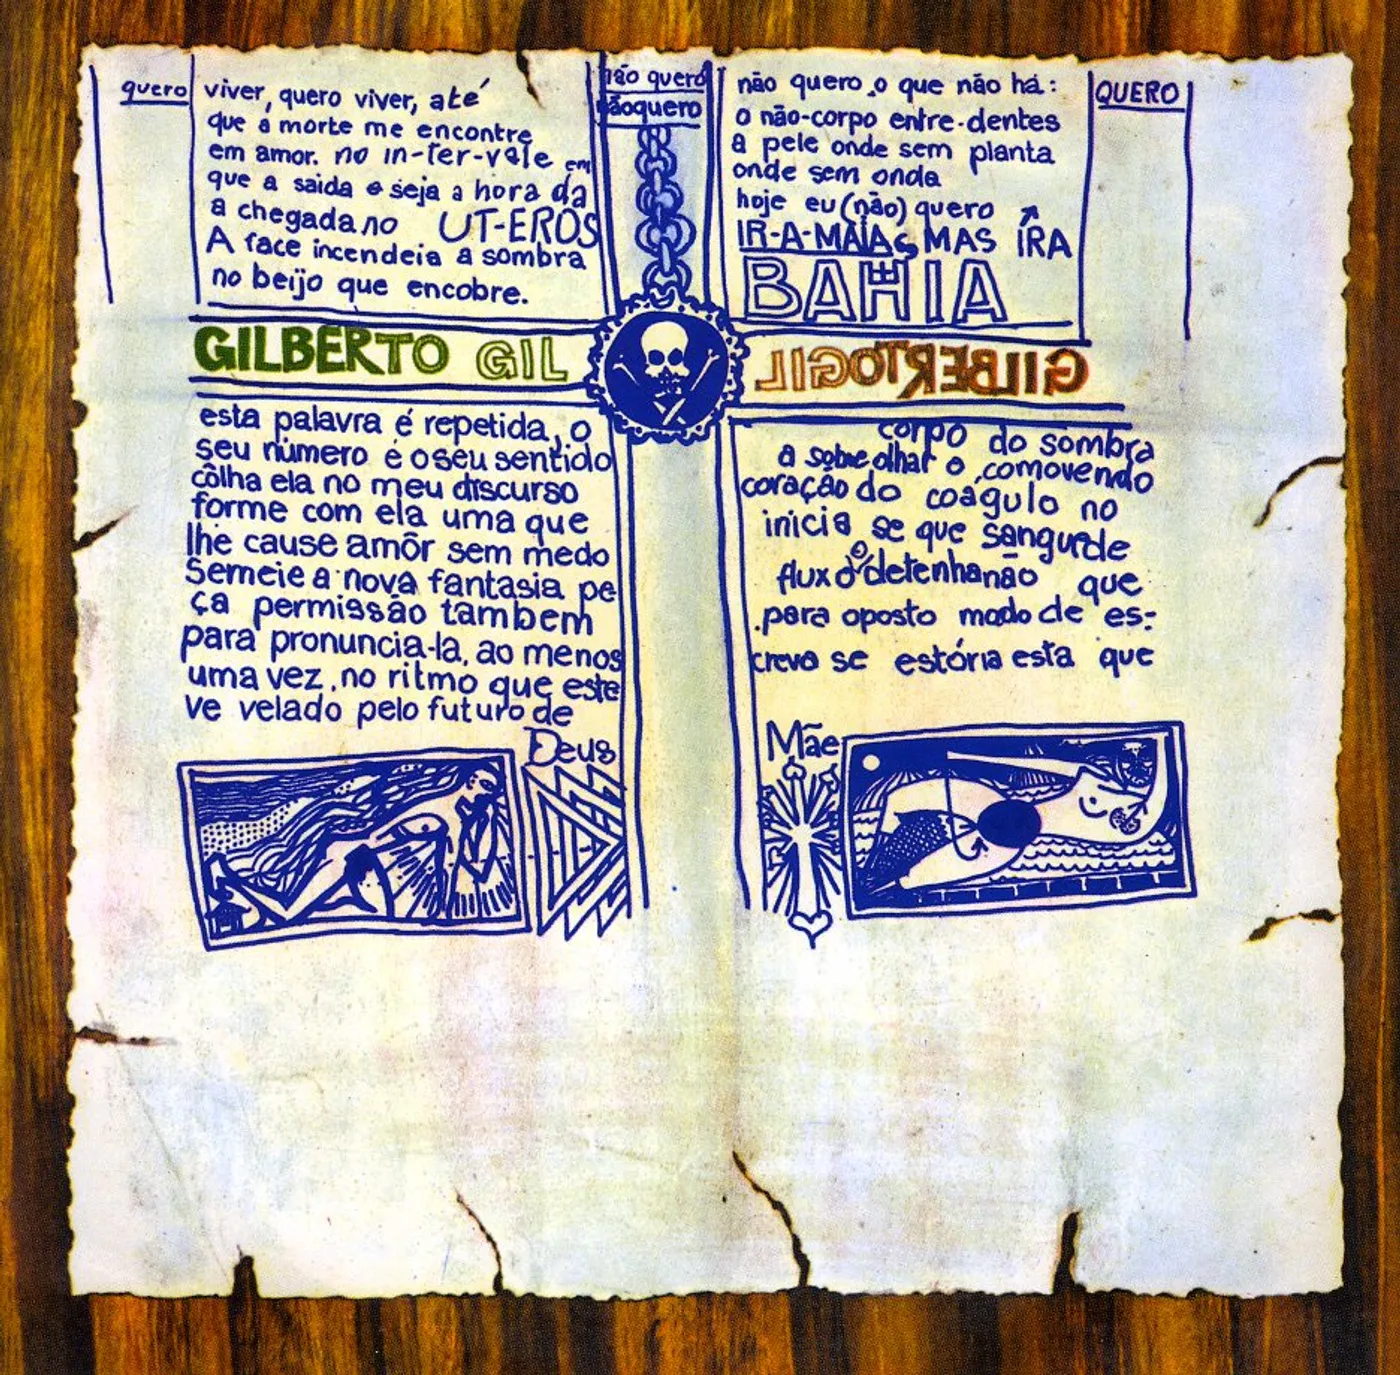 quero
viver, quero viver, até
que a morte me encontre
em amor. no in-ter-vale em
que a saida e seja a hora da
a chegada no UT-EROS
A face incendeia a sombra
no beijo que encobre.
não quero
nãoquero
não quero o que não há:
o não-corpo entre-dentes
a pele onde sem planta
onde sem onda
hoje eu (não) quero
IR-A-MAIA, MAS IRA
BAHIA
QUERO
GILBERTO GIL
GILBERTO GIL
esta palavra é repetida, o
seu número é o seu sentido
côlha ela no meu discurso
forme com ela uma que
lhe cause amôr sem medo
Semeie a nova fantasia pe
ça permissão tambem
para pronuncia-la, ao menos
uma vez, no ritmo que este
ve velado pelo futuro de
Deus
corpo do sombra
a sobre olhar o comovendo
coração do coágulo no
inicia se que sangue de
fluxo o detenha não que
para oposto modo de es-
creva se estória esta que
Mãe